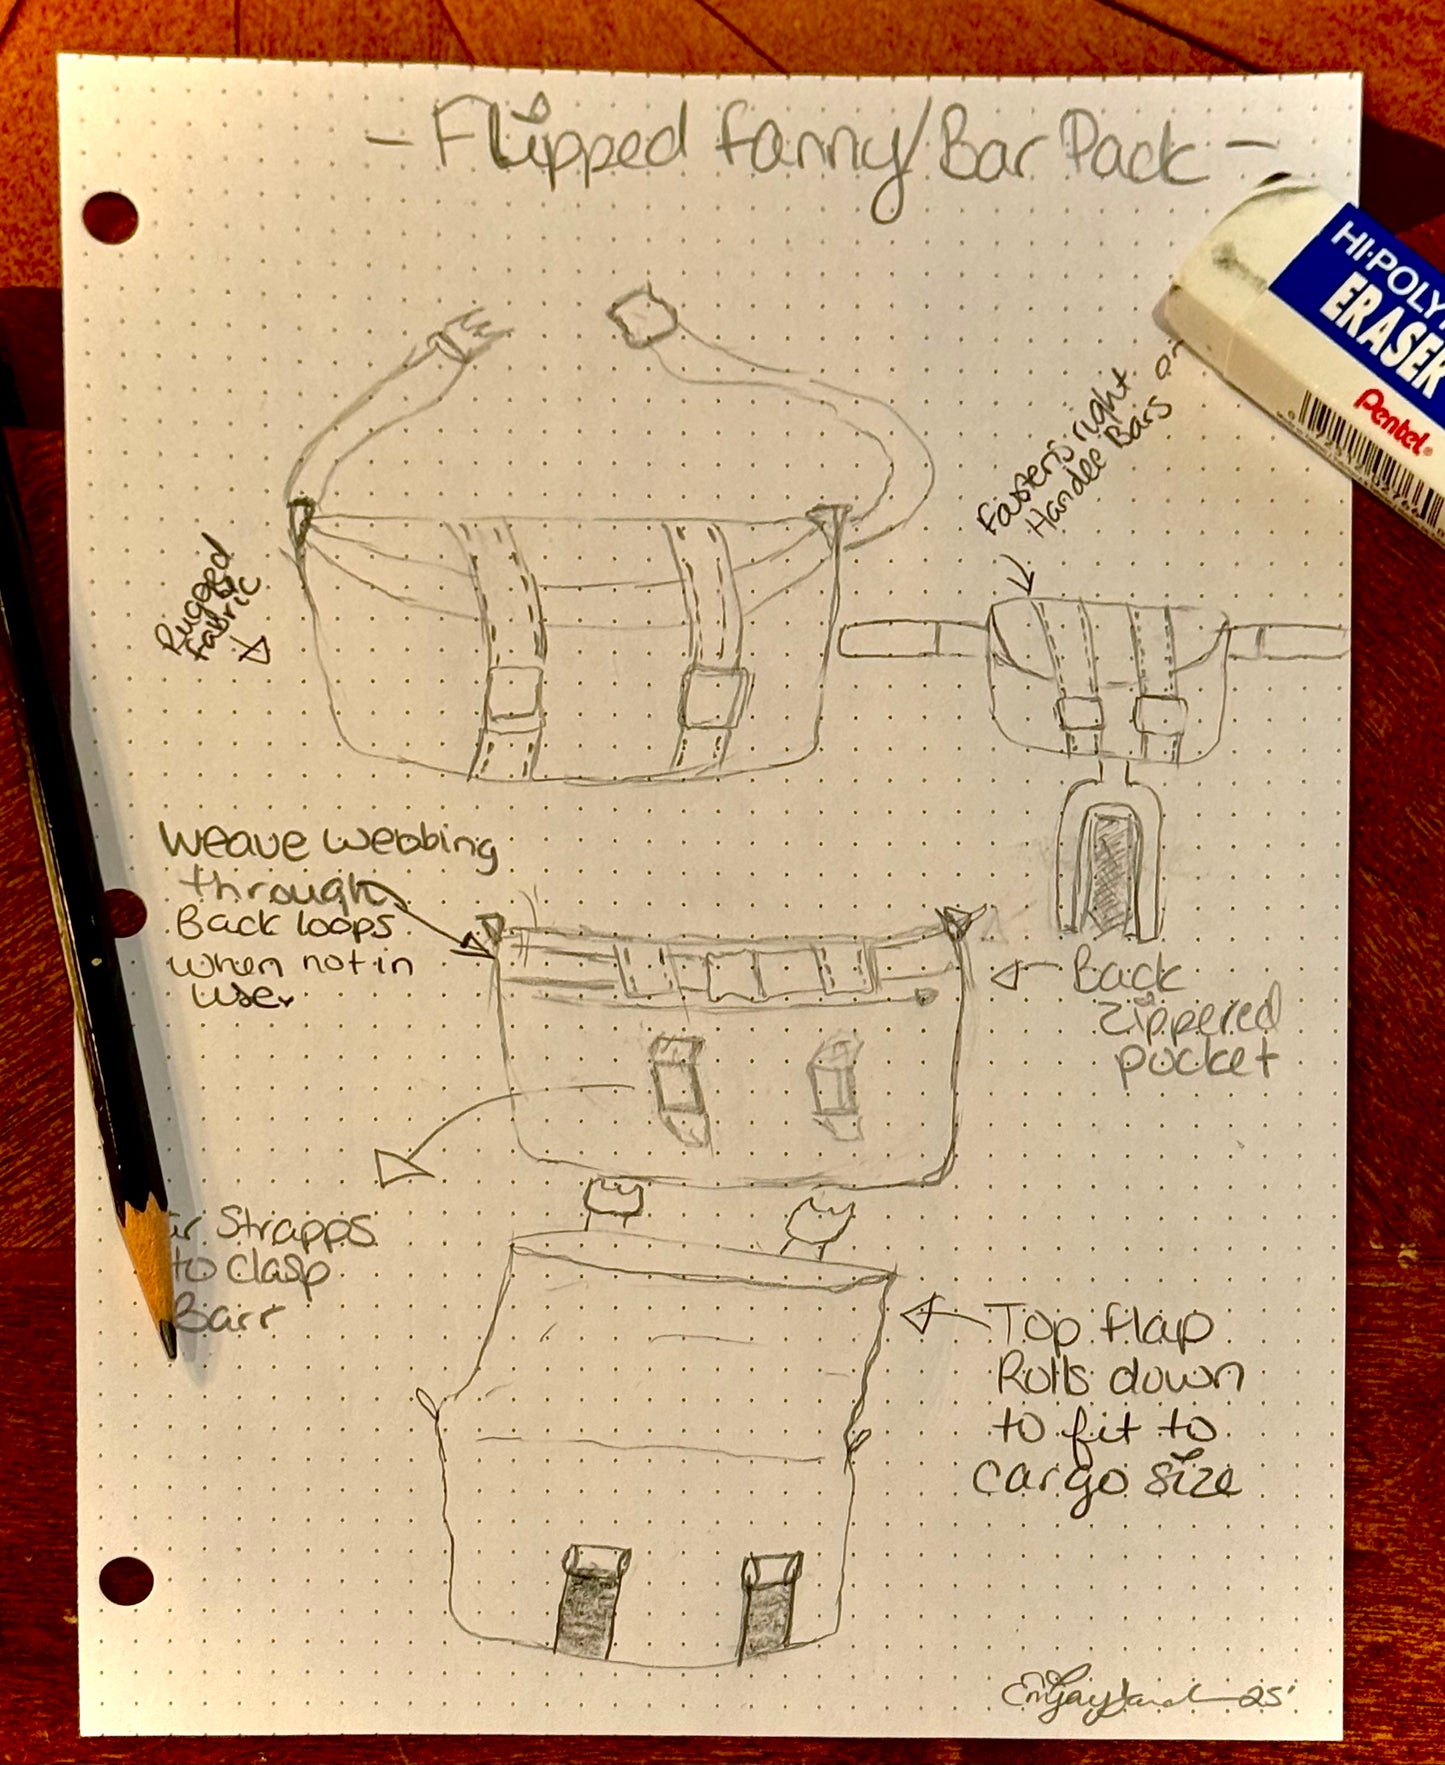 - Flipped Fanny/Bar Pack -
HI-POLY
ERASER
Pentel
Fastens right on
Handle Bars
Rugged
fabric
Weave webbing
through
Back loops
when not in
use
Back
Zippered
pocket
Strapps
to clasp
Barr
Top flap
Rolls down
to fit to
cargo size
25'